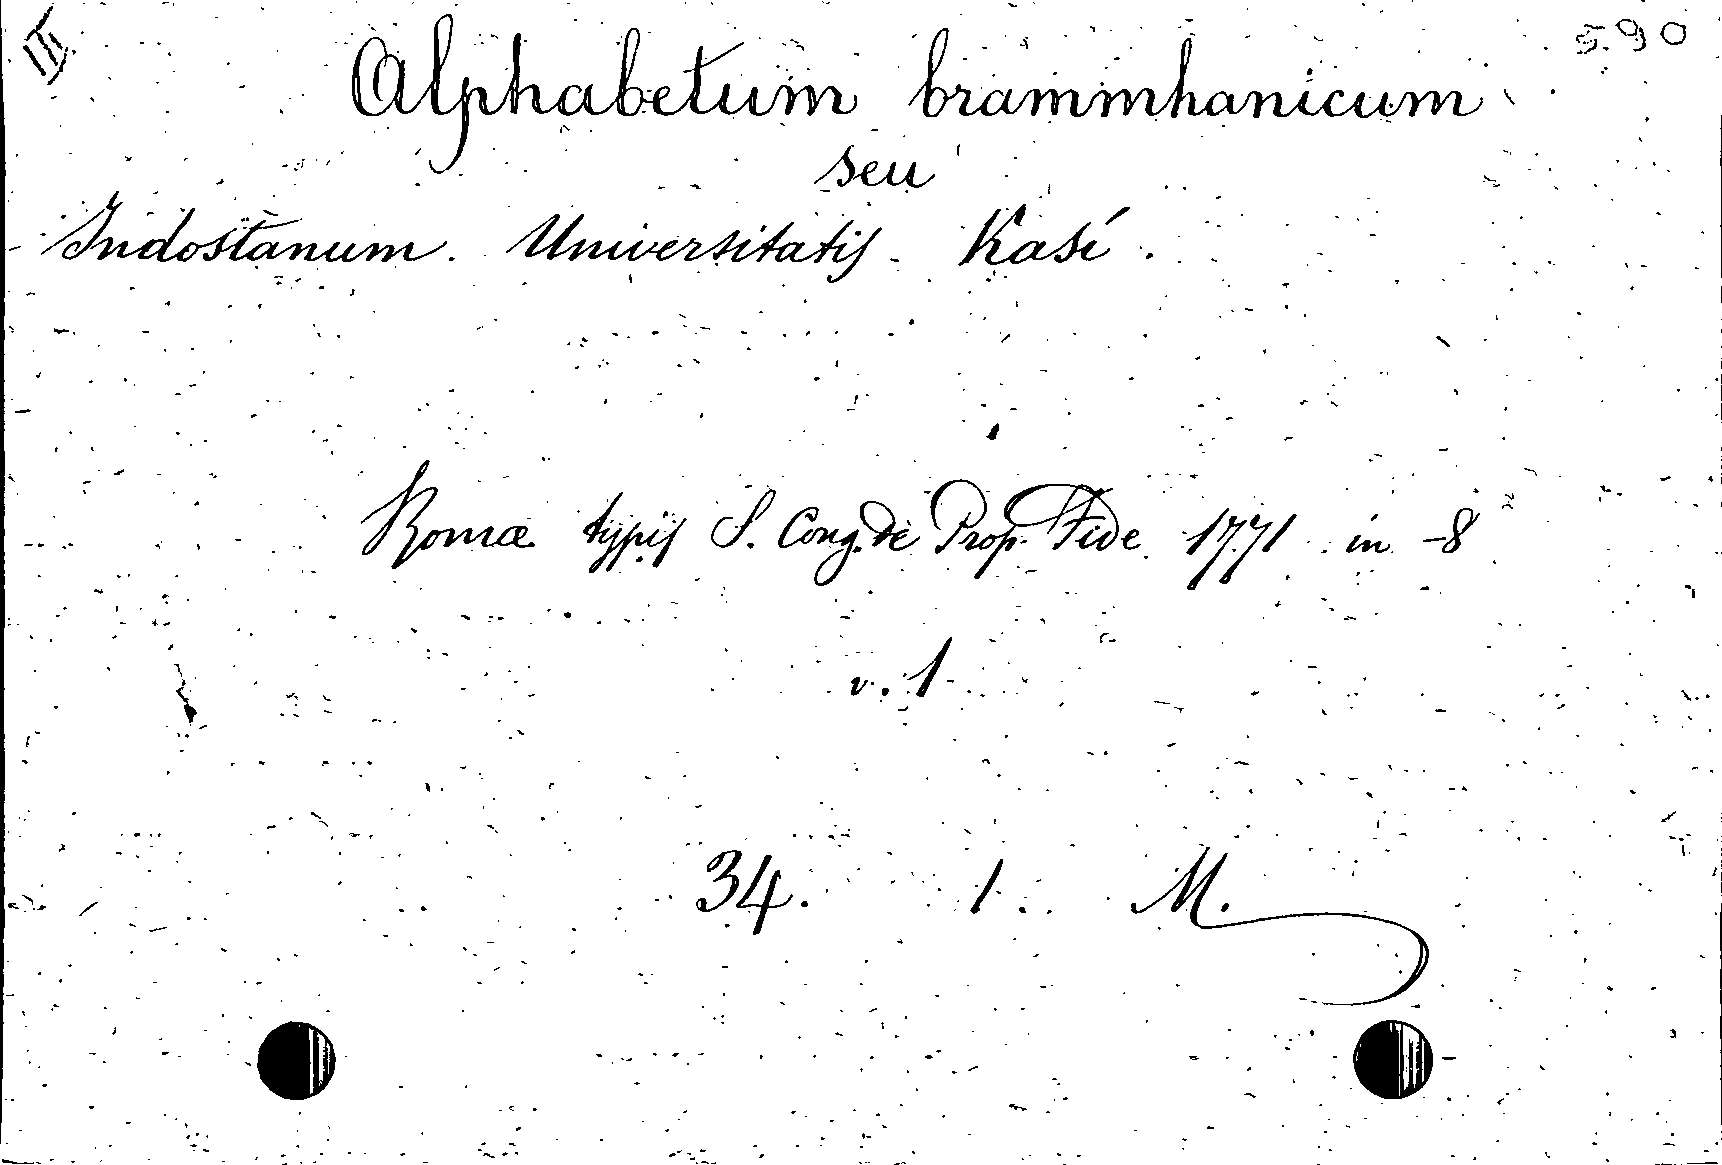 III 5.90
Alphabetum brammhanicum
seu
Indostanum. Universitatis Kasí.
Romæ typis S. Cong. de Prop. Fide 1771 in -8
v. 1
34. 1. M.